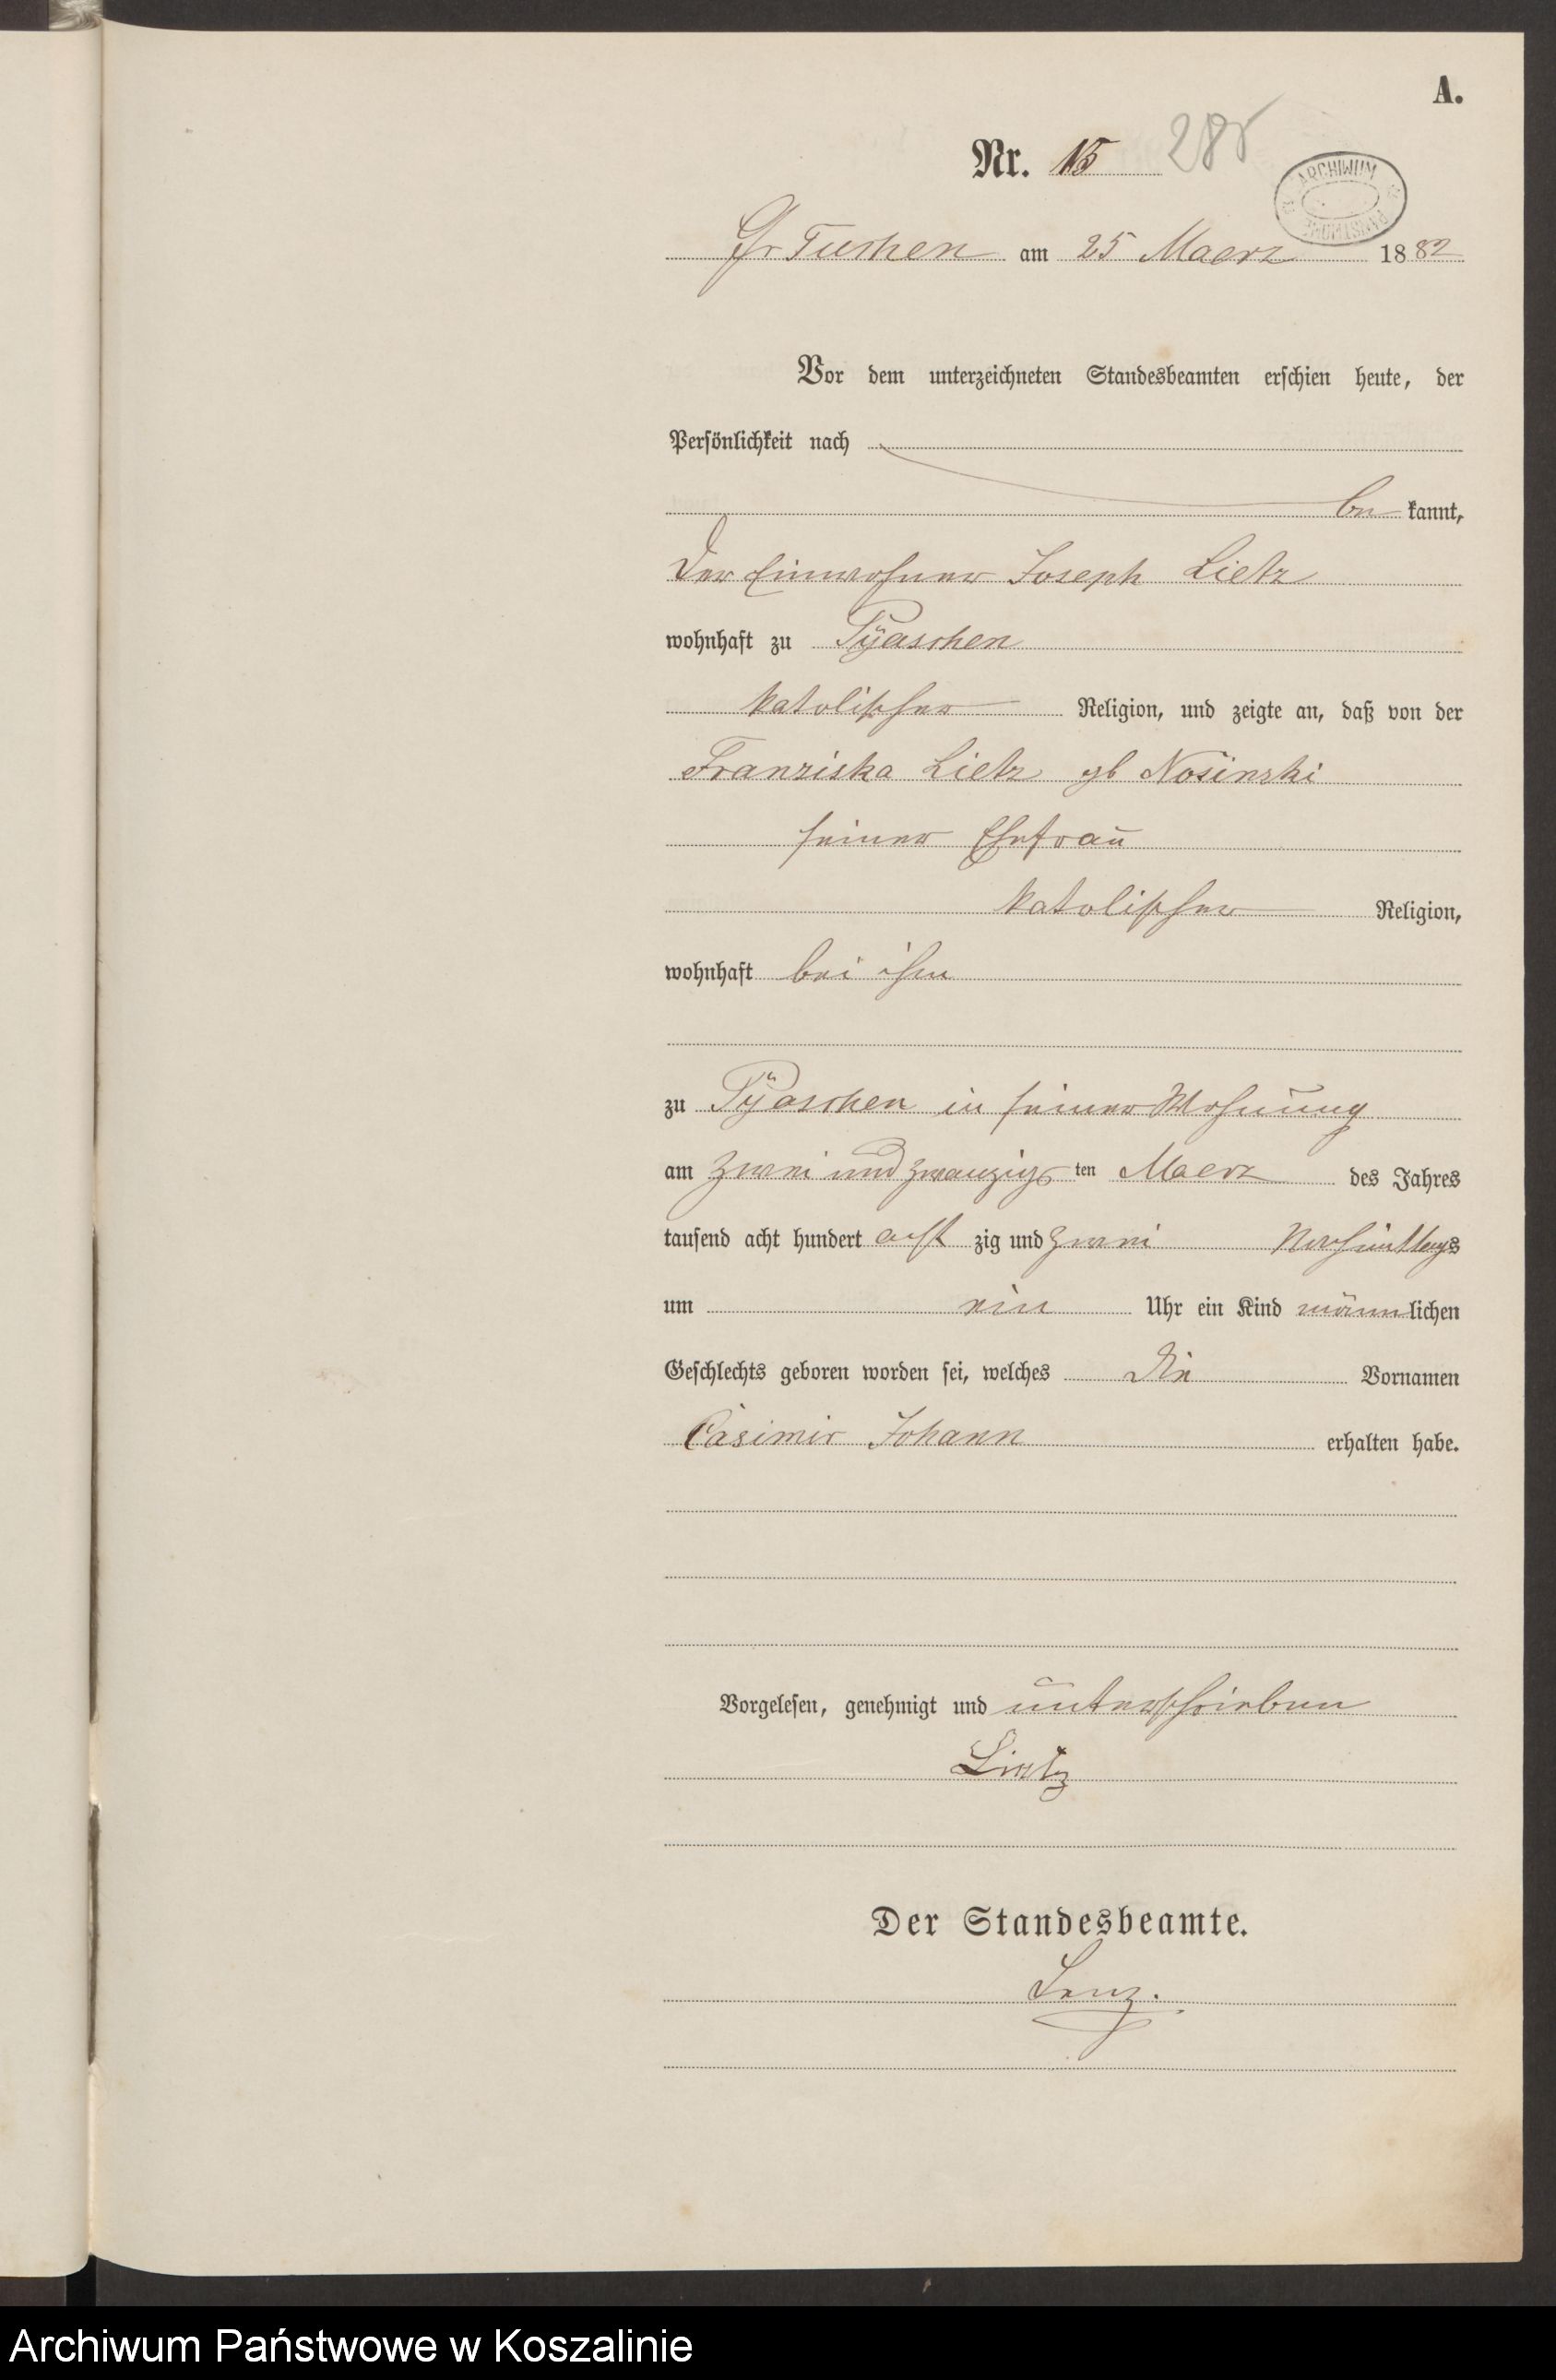 A.
Nr. 15 288
ARCHIWUM PAŃSTWOWE
Gr Tuchen am 25 Maerz 1882
Vor dem unterzeichneten Standesbeamten erschien heute, der
Persönlichkeit nach
be kannt,
Der Einwohner Joseph Lietz
wohnhaft zu Pÿaschen
katolischer Religion, und zeigte an, daß von der
Franziska Lietz gb Nosinski
seiner Ehefrau
katolischer Religion,
wohnhaft bei ihm
zu Pÿaschen in seiner Wohnung
am zwei und zwanzigs ten Maerz des Jahres
tausend acht hundert acht zig und zwei Nachmittags
um ein Uhr ein Kind männlichen
Geschlechts geboren worden sei, welches die Vornamen
Casimir Johann erhalten habe.
Vorgelesen, genehmigt und unterschrieben
Lietz
Der Standesbeamte.
Lenz.
Archiwum Państwowe w Koszalinie